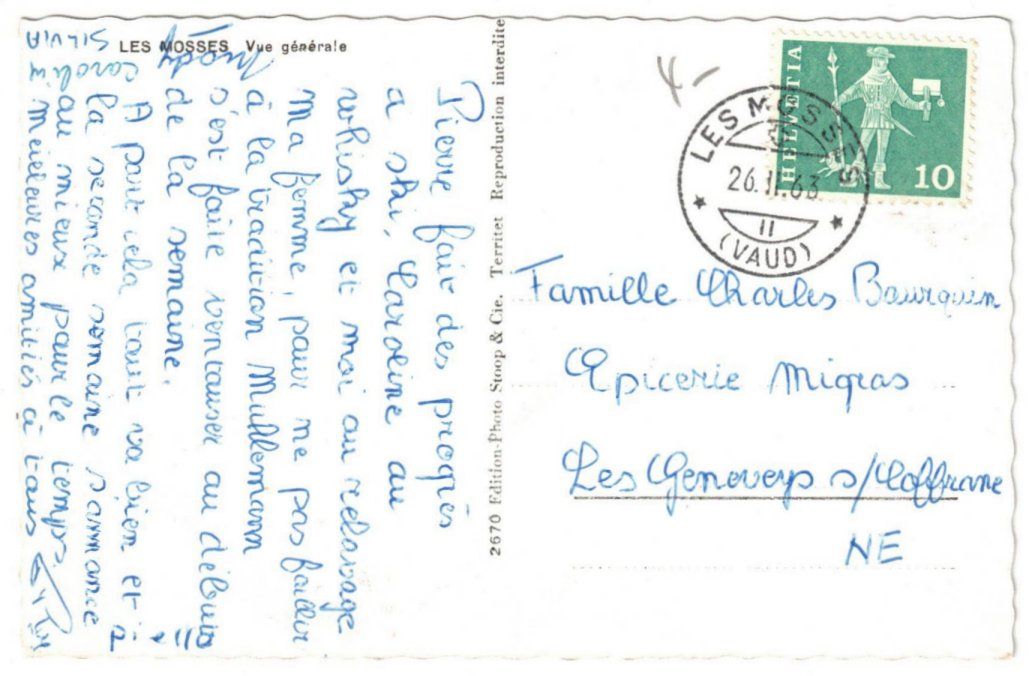 LES MOSSES Vue générale
Pierre fait des progrès
a ski, Caroline au
whisky et moi au relavage
Ma femme, pour ne pas faillir
à la tradition Muhlemann
s'est faite ventouser au début
de la semaine.
A part cela tout va bien et
la seconde semaine s'annonce
au mieux pour le temps.
Meilleures amitiés à tous
Caroline
SILVIA
2670 Edition-Photo Stoop & Cie. Territet Reproduction interdite
4.-
HELVETIA
10
LES MOSSES
26.II.63
II
(VAUD)
Famille Charles Bourquin
Epicerie Migros
Les Geneveys s/Coffrane
NE